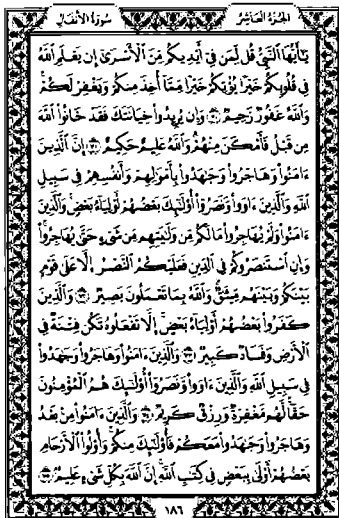 الجزء العاشر سورة الأنفال
يَٰٓأَيُّهَا ٱلنَّبِىُّ قُل لِّمَن فِىٓ أَيْدِيكُم مِّنَ ٱلْأَسْرَىٰٓ إِن يَعْلَمِ ٱللَّهُ
فِى قُلُوبِكُمْ خَيْرًا يُؤْتِكُمْ خَيْرًا مِّمَّآ أُخِذَ مِنكُمْ وَيَغْفِرْ لَكُمْ
وَٱللَّهُ غَفُورٌ رَّحِيمٌ ٧٠ وَإِن يُرِيدُوا۟ خِيَانَتَكَ فَقَدْ خَانُوا۟ ٱللَّهَ
مِن قَبْلُ فَأَمْكَنَ مِنْهُمْ وَٱللَّهُ عَلِيمٌ حَكِيمٌ ٧١ إِنَّ ٱلَّذِينَ
ءَامَنُوا۟ وَهَاجَرُوا۟ وَجَٰهَدُوا۟ بِأَمْوَٰلِهِمْ وَأَنفُسِهِمْ فِى سَبِيلِ
ٱللَّهِ وَٱلَّذِينَ ءَاوَوا۟ وَّنَصَرُوٓا۟ أُو۟لَٰٓئِكَ بَعْضُهُمْ أَوْلِيَآءُ بَعْضٍ وَٱلَّذِينَ
ءَامَنُوا۟ وَلَمْ يُهَاجِرُوا۟ مَا لَكُم مِّن وَلَٰيَتِهِم مِّن شَىْءٍ حَتَّىٰ يُهَاجِرُوا۟
وَإِنِ ٱسْتَنصَرُوكُمْ فِى ٱلدِّينِ فَعَلَيْكُمُ ٱلنَّصْرُ إِلَّا عَلَىٰ قَوْمٍۭ
بَيْنَكُمْ وَبَيْنَهُم مِّيثَٰقٌ وَٱللَّهُ بِمَا تَعْمَلُونَ بَصِيرٌ ٧٢ وَٱلَّذِينَ
كَفَرُوا۟ بَعْضُهُمْ أَوْلِيَآءُ بَعْضٍ إِلَّا تَفْعَلُوهُ تَكُن فِتْنَةٌ فِى
ٱلْأَرْضِ وَفَسَادٌ كَبِيرٌ ٧٣ وَٱلَّذِينَ ءَامَنُوا۟ وَهَاجَرُوا۟ وَجَٰهَدُوا۟
فِى سَبِيلِ ٱللَّهِ وَٱلَّذِينَ ءَاوَوا۟ وَّنَصَرُوٓا۟ أُو۟لَٰٓئِكَ هُمُ ٱلْمُؤْمِنُونَ
حَقًّا لَّهُم مَّغْفِرَةٌ وَرِزْقٌ كَرِيمٌ ٧٤ وَٱلَّذِينَ ءَامَنُوا۟ مِنۢ بَعْدُ
وَهَاجَرُوا۟ وَجَٰهَدُوا۟ مَعَكُمْ فَأُو۟لَٰٓئِكَ مِنكُمْ وَأُو۟لُوا۟ ٱلْأَرْحَامِ
بَعْضُهُمْ أَوْلَىٰ بِبَعْضٍ فِى كِتَٰبِ ٱللَّهِ إِنَّ ٱللَّهَ بِكُلِّ شَىْءٍ عَلِيمٌۢ ٧٥
١٨٦